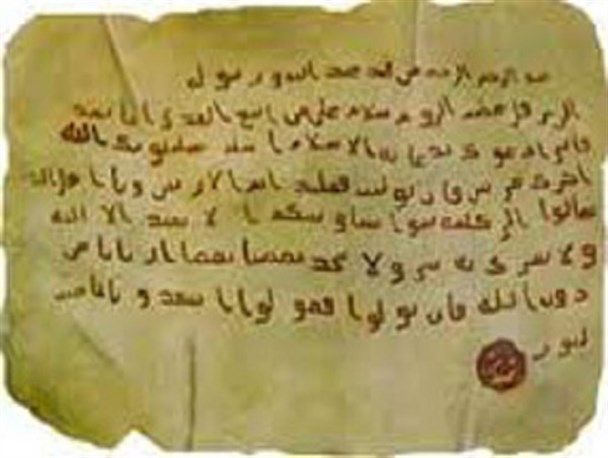 الرحمن الرحيم من محمد عبد الله ورسوله
الى هرقل عظيم الروم سلام على من اتبع الهدى اما بعد
فانى ادعوك بدعاية الاسلام اسلم تسلم يوتك الله
اجرك مرتين فان توليت فعليك اثم الاريسين ويا اهل
تعالوا الى كلمة سوا بيننا وبينكم الا نعبد الا الله
ولا نشرك به شيا ولا يتخذ بعضنا بعضا اربابا من
دون الله فان تولوا فقولوا اشهدوا بانا